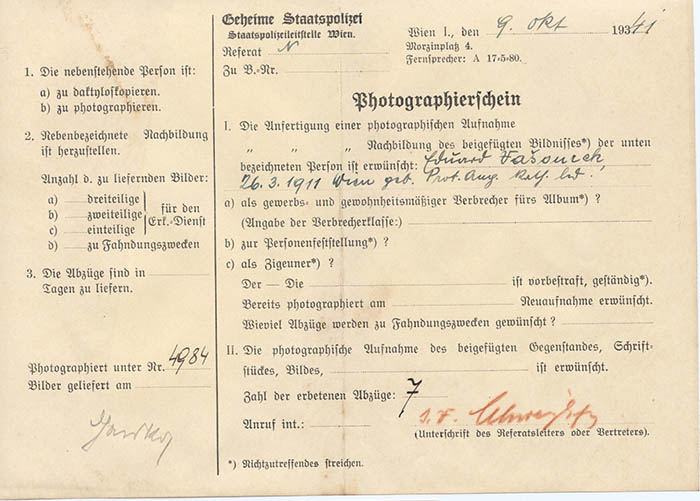 Geheime Staatspolizei
Staatspolizeileitstelle Wien.
Referat N
Zu B.-Nr.
Wien I., den 9. Okt 1941
Morzinplatz 4.
Fernsprecher: A 17-5-80.
1. Die nebenstehende Person ist:
a) zu daktyloskopieren.
b) zu photographieren.
2. Nebenbezeichnete Nachbildung
ist herzustellen.
Anzahl d. zu liefernden Bilder:
a) dreiteilige
b) zweiteilige
c) einteilige
d) zu Fahndungszwecken
für den
Erk.-Dienst
3. Die Abzüge sind in
Tagen zu liefern.
Photographiert unter Nr. 4984
Bilder geliefert am
Photographierschein
I. Die Anfertigung einer photographischen Aufnahme
" " " Nachbildung des beigefügten Bildnisses*) der unten
bezeichneten Person ist erwünscht: Eduard
26.3.1911 Wien geb. led.
a) als gewerbs- und gewohnheitsmäßiger Verbrecher fürs Album*) ?
(Angabe der Verbrecherklasse:)
b) zur Personenfeststellung*) ?
c) als Zigeuner*) ?
Der — Die ist vorbestraft, geständig*).
Bereits photographiert am Neuaufnahme erwünscht.
Wieviel Abzüge werden zu Fahndungszwecken gewünscht ?
II. Die photographische Aufnahme des beigefügten Gegenstandes, Schrift-
stückes, Bildes, ist erwünscht.
Zahl der erbetenen Abzüge: 7
Anruf int.:
(Unterschrift des Referatsleiters oder Vertreters).
*) Nichtzutreffendes streichen.